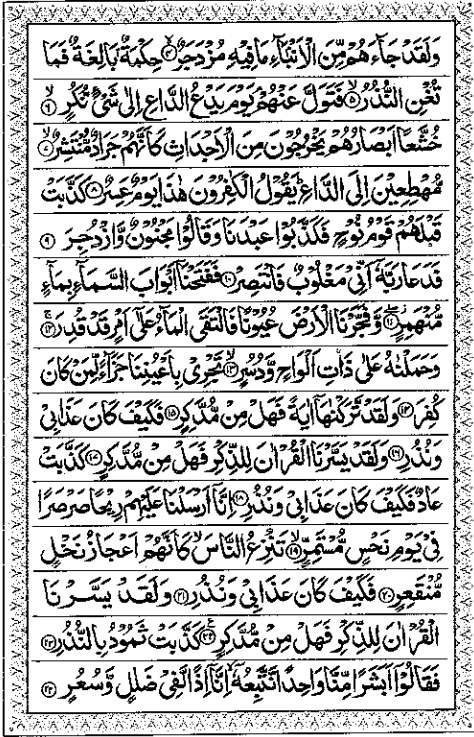 وَلَقَدْ جَآءَهُمْ مِّنَ الْاَنْۢبَآءِ مَا فِيْهِ مُزْدَجَرٌ ۙ۴ حِكْمَةٌۢ بَالِغَةٌ فَمَا
تُغْنِ النُّذُرُ ۙ۵ فَتَوَلَّ عَنْهُمْ يَوْمَ يَدْعُ الدَّاعِ اِلٰى شَيْءٍ نُّكُرٍ ۙ۶
خُشَّعًا اَبْصَارُهُمْ يَخْرُجُوْنَ مِنَ الْاَجْدَاثِ كَاَنَّهُمْ جَرَادٌ مُّنْتَشِرٌ ۙ۷
مُّهْطِعِيْنَ اِلَى الدَّاعِ يَقُوْلُ الْكٰفِرُوْنَ هٰذَا يَوْمٌ عَسِرٌ ۸ كَذَّبَتْ
قَبْلَهُمْ قَوْمُ نُوْحٍ فَكَذَّبُوْا عَبْدَنَا وَقَالُوْا مَجْنُوْنٌ وَّازْدُجِرَ ۹
فَدَعَا رَبَّهٗۤ اَنِّيْ مَغْلُوْبٌ فَانْتَصِرْ ۱۰ فَفَتَحْنَاۤ اَبْوَابَ السَّمَآءِ بِمَآءٍ
مُّنْهَمِرٍ ۱۱ وَّفَجَّرْنَا الْاَرْضَ عُيُوْنًا فَالْتَقَى الْمَآءُ عَلٰۤى اَمْرٍ قَدْ قُدِرَ ۱۲
وَحَمَلْنٰهُ عَلٰى ذَاتِ اَلْوَاحٍ وَّدُسُرٍ ۙ۱۳ تَجْرِيْ بِاَعْيُنِنَا جَزَآءً لِّمَنْ كَانَ
كُفِرَ ۱۴ وَلَقَدْ تَّرَكْنٰهَاۤ اٰيَةً فَهَلْ مِنْ مُّدَّكِرٍ ۱۵ فَكَيْفَ كَانَ عَذَابِيْ
وَنُذُرِ ۱۶ وَلَقَدْ يَسَّرْنَا الْقُرْاٰنَ لِلذِّكْرِ فَهَلْ مِنْ مُّدَّكِرٍ ۱۷ كَذَّبَتْ
عَادٌ فَكَيْفَ كَانَ عَذَابِيْ وَنُذُرِ ۱۸ اِنَّاۤ اَرْسَلْنَا عَلَيْهِمْ رِيْحًا صَرْصَرًا
فِيْ يَوْمِ نَحْسٍ مُّسْتَمِرٍّ ۙ۱۹ تَنْزِعُ النَّاسَ كَاَنَّهُمْ اَعْجَازُ نَخْلٍ
مُّنْقَعِرٍ ۲۰ فَكَيْفَ كَانَ عَذَابِيْ وَنُذُرِ ۲۱ وَلَقَدْ يَسَّرْنَا
الْقُرْاٰنَ لِلذِّكْرِ فَهَلْ مِنْ مُّدَّكِرٍ ۲۲ كَذَّبَتْ ثَمُوْدُ بِالنُّذُرِ ۲۳
فَقَالُوْۤا اَبَشَرًا مِّنَّا وَاحِدًا نَّتَّبِعُهٗۤ اِنَّاۤ اِذًا لَّفِيْ ضَلٰلٍ وَّسُعُرٍ ۲۴